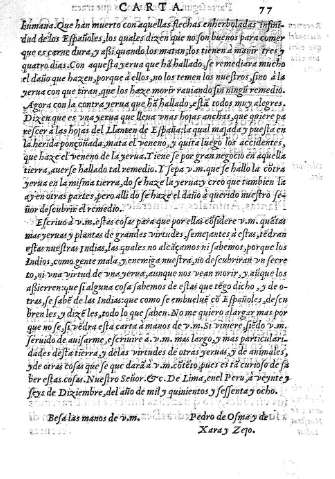 CARTA. 77
humana. Que han muerto con aquellas flechas enherboladas infini
dad de los Españoles, los quales dizen que no son buenos para comer
que es carne dura, y assi quando los matan, los tienen à manir tres y
quatro dias. Con aquesta yerua que há hallado, se remediara mucho
el daño que hazen, porque à ellos, no los temen los nuestros, sino à la
yerua con que tiran, que los haze morir rauiando sin ningũ remedio.
Agora con la contra yerua que hã hallado, estã todos muy alegres.
Dizen que es vna yerua que lleua vnas hojas anchas, que quiere pa
rescer à las hojas del Llanten de España: la qual majada y puesta en
la herida ponçoñada, mata el veneno, y quita luego los accidentes,
que haze el veneno de la yerua. Tiene se por gran negocio en aquella
tierra, auerse hallado tal remedio. Y sepa v.m. que se hallo la cõtra
yerua en la misma tierra, do se haze la yerua: y creo que tambien la
ay en otras partes, pero alli do se haze el daño à querido nuestro se-
ñor descubrir el remedio.
Escriuo à v.m. estas cosas para que por ellas cõsidere v.m. quãtas
mas yeruas y plantas de grandes virtudes, semejantes à estas, ternan
estas nuestras Indias, las quales no alcãçamos ni sabemos, porque los
Indios, como gente mala, y enemiga nuestra, no descubriran vn secre
to, ni vna virtud de vna yerua, aunque nos vean morir, y aũque los
assierren: que si alguna cosa sabemos de estas que tẽgo dicho, y de o-
tras, se sabe de las Indias: que como se embueluẽ cõ Españoles, descu
bren les, y dizẽ les, todo lo que saben. No me quiero alargar mas por
que no se, si vẽdra esta carta à manos de v.m. Si viniere, siẽdo v.m.
seruido de auisarme, escriuire à v.m. mas largo, y mas particulari
dades desta tierra, y de las virtudes de otras yeruas, y de animales,
y de otras cosas que se que darã à v.m. cõtẽto, pues es tã curioso de sa
ber estas cosas. Nuestro Señor. &c. De Lima, en el Peru, à veynte y
seys de Diziembre, del año de mil y quinientos y sessenta y ocho.
Besa las manos de v.m. Pedro de Osma y de
Xara y Zejo.